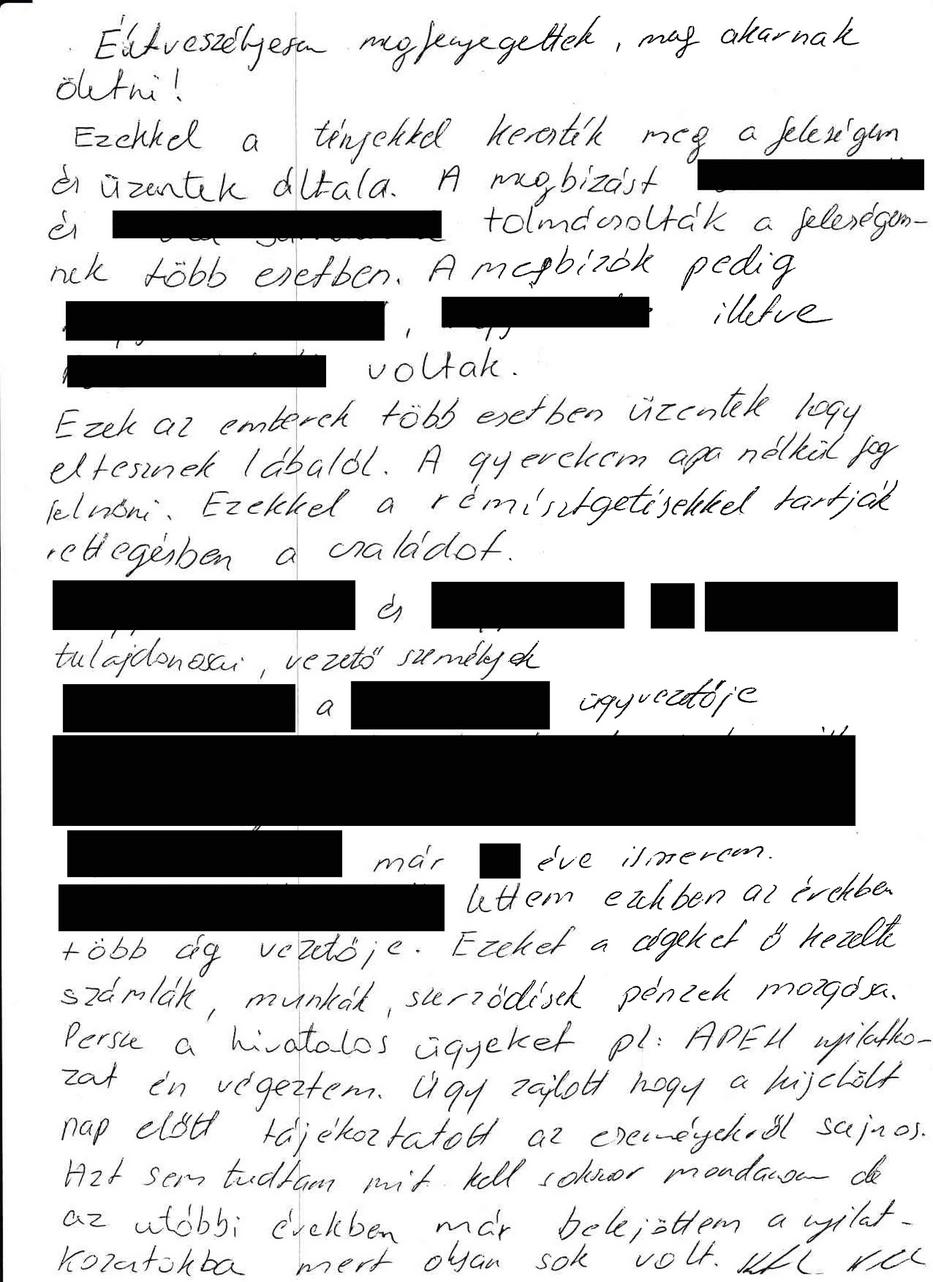 Életveszélyesen megfenyegettek, meg akarnak
öletni!
Ezekkel a tényekkel keresték meg a feleségem
és üzentek általa. A megbízást
és tolmácsolták a feleségem-
nek több esetben. A megbízók pedig
, illetve
voltak.
Ezek az emberek több esetben üzentek hogy
eltesznek lábalól. A gyerekem apa nélkül fog
felnőni. Ezekkel a rémisztgetésekkel tartják
rettegésben a családot.
és
tulajdonosai, vezető személyek
a ügyvezetője
már éve ismerem.
lettem ezekben az években
több cég vezetője. Ezeket a cégeket ő kezelte
számlák, munkák, szerződések pénzek mozgása.
Persze a hivatalos ügyeket pl: APEH nyilatko-
zat én végeztem. Úgy zajlott hogy a kijelölt
nap előtt tájékoztatott az eseményekről sajnos.
Azt sem tudtam mit kell sokszor mondanom de
az utóbbi években már belejöttem a nyilat-
kozatokba mert olyan sok volt.